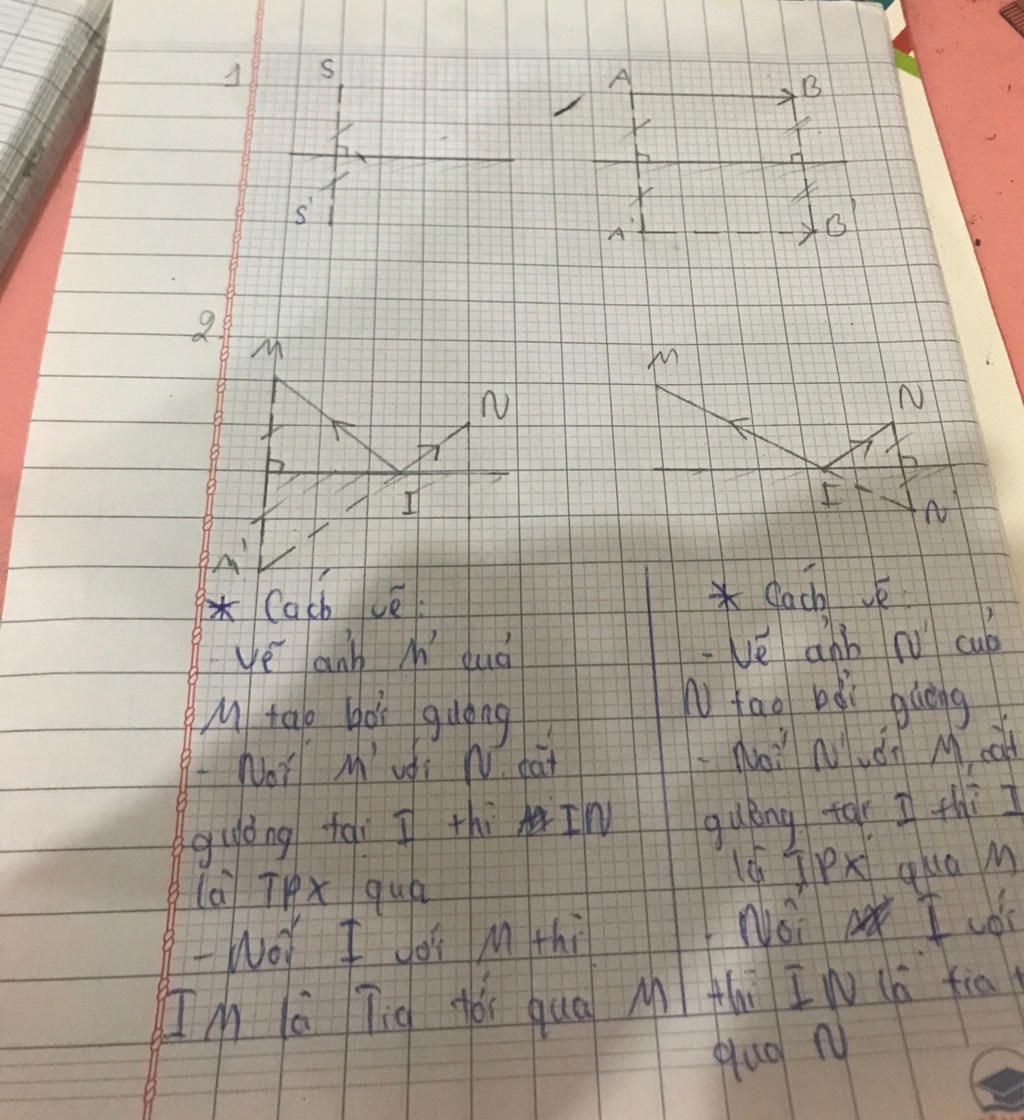 1
S
S'
A
B
A'
B'
2
M
N
I
M'
M
N
I
N'
* Cách vẽ:
- Vẽ ảnh M' quả
M tạo bởi gương
- Nối M' với N cắt
gương tại I thì IN
là TPX qua
- Nối I với M thì
IM là Tia tới qua M
* Cách vẽ
- Vẽ ảnh N' của
N tạo bởi gương
- Nối N' với M, cắt
gương tại I thì I
là TPX qua M
- Nối I với
thì IN là tia
qua N